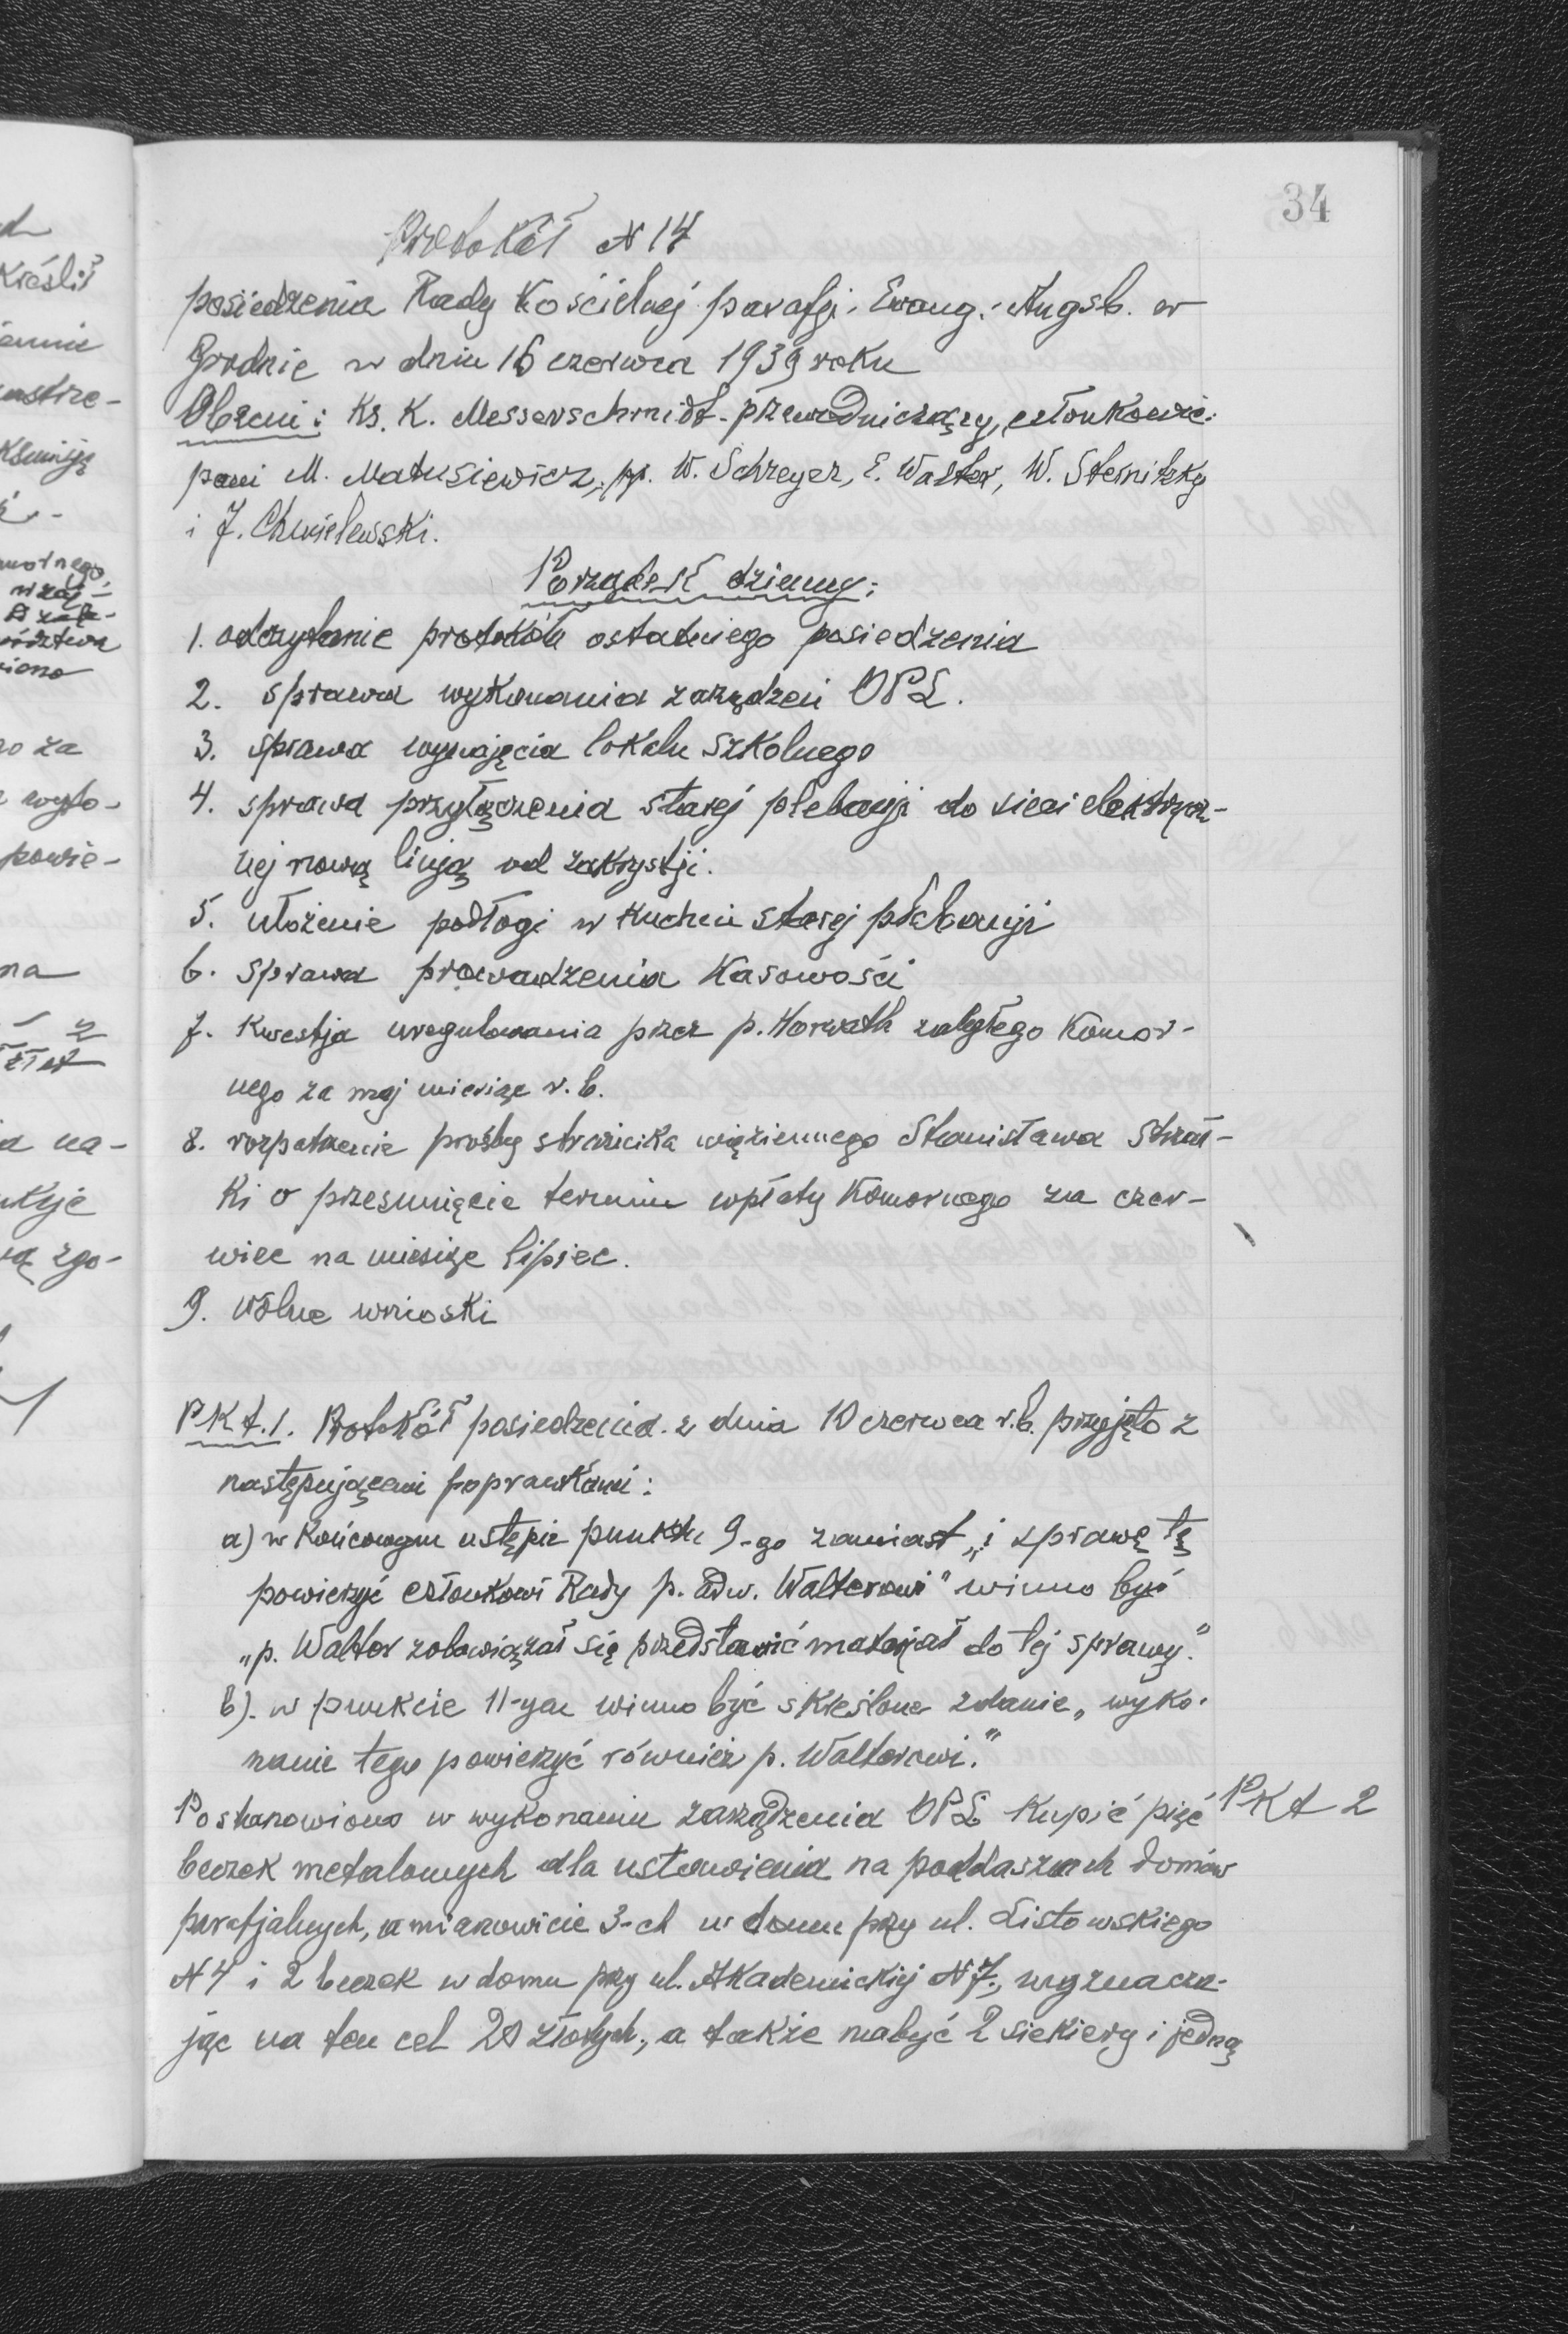 34
Protokół N 14
posiedzenia Rady Kościelnej parafji Ewang.-Augsb. w
Grodnie w dniu 16 czerwca 1939 roku
Obecni: Ks. K. Messerschmidt - przewodniczący, członkowie:
pani M. Matusiewicz, pp. W. Schreyer, E. Walter, W. Sternitzky
i J. Chmielewski.
Porządek dzienny:
1. odczytanie protokółu ostatniego posiedzenia
2. sprawa wykonania zarządzeń OPL.
3. sprawa wynajęcia lokalu szkolnego
4. sprawa przyłączenia starej plebanji do sieci elektrycz-
nej nową linją od zakrystji.
5. ułożenie podłogi w kuchni starej plebanji
6. sprawa prowadzenia kasowości
7. Kwestja uregulowania przez p. Horwath zaległego komor-
nego za maj miesiąc r.b.
8. rozpatrzenie prośby strażnika więziennego Stanisława Strzał-
ki o przesunięcie terminu wpłaty komornego za czer-
wiec na miesiąc lipiec.
9. wolne wnioski
PKt.1. Protokół posiedzenia z dnia 10 czerwca r.b. przyjęto z
następującemi poprawkami:
a) w końcowym ustępie punktu 9-go zamiast „i sprawę tę
powierzyć członkowi Rady p. adw. Walterowi" winno być
„p. Walter zobowiązał się przedstawić materjał do tej sprawy."
b). w punkcie 11-ym winno być skreślone zdanie „wyko-
nanie tego powierzyć również p. Walterowi."
Postanowiono w wykonaniu zarządzenia OPL kupić pięć
PKt 2
beczek metalowych dla ustawienia na poddaszach domów
parafjalnych, a mianowicie 3-ch w domu przy ul. Listowskiego
N 4 i 2 beczek w domu przy ul. Akademickiej N 7., wyznacza-
jąc na ten cel 20 złotych., a także nabyć 2 siekiery i jedną